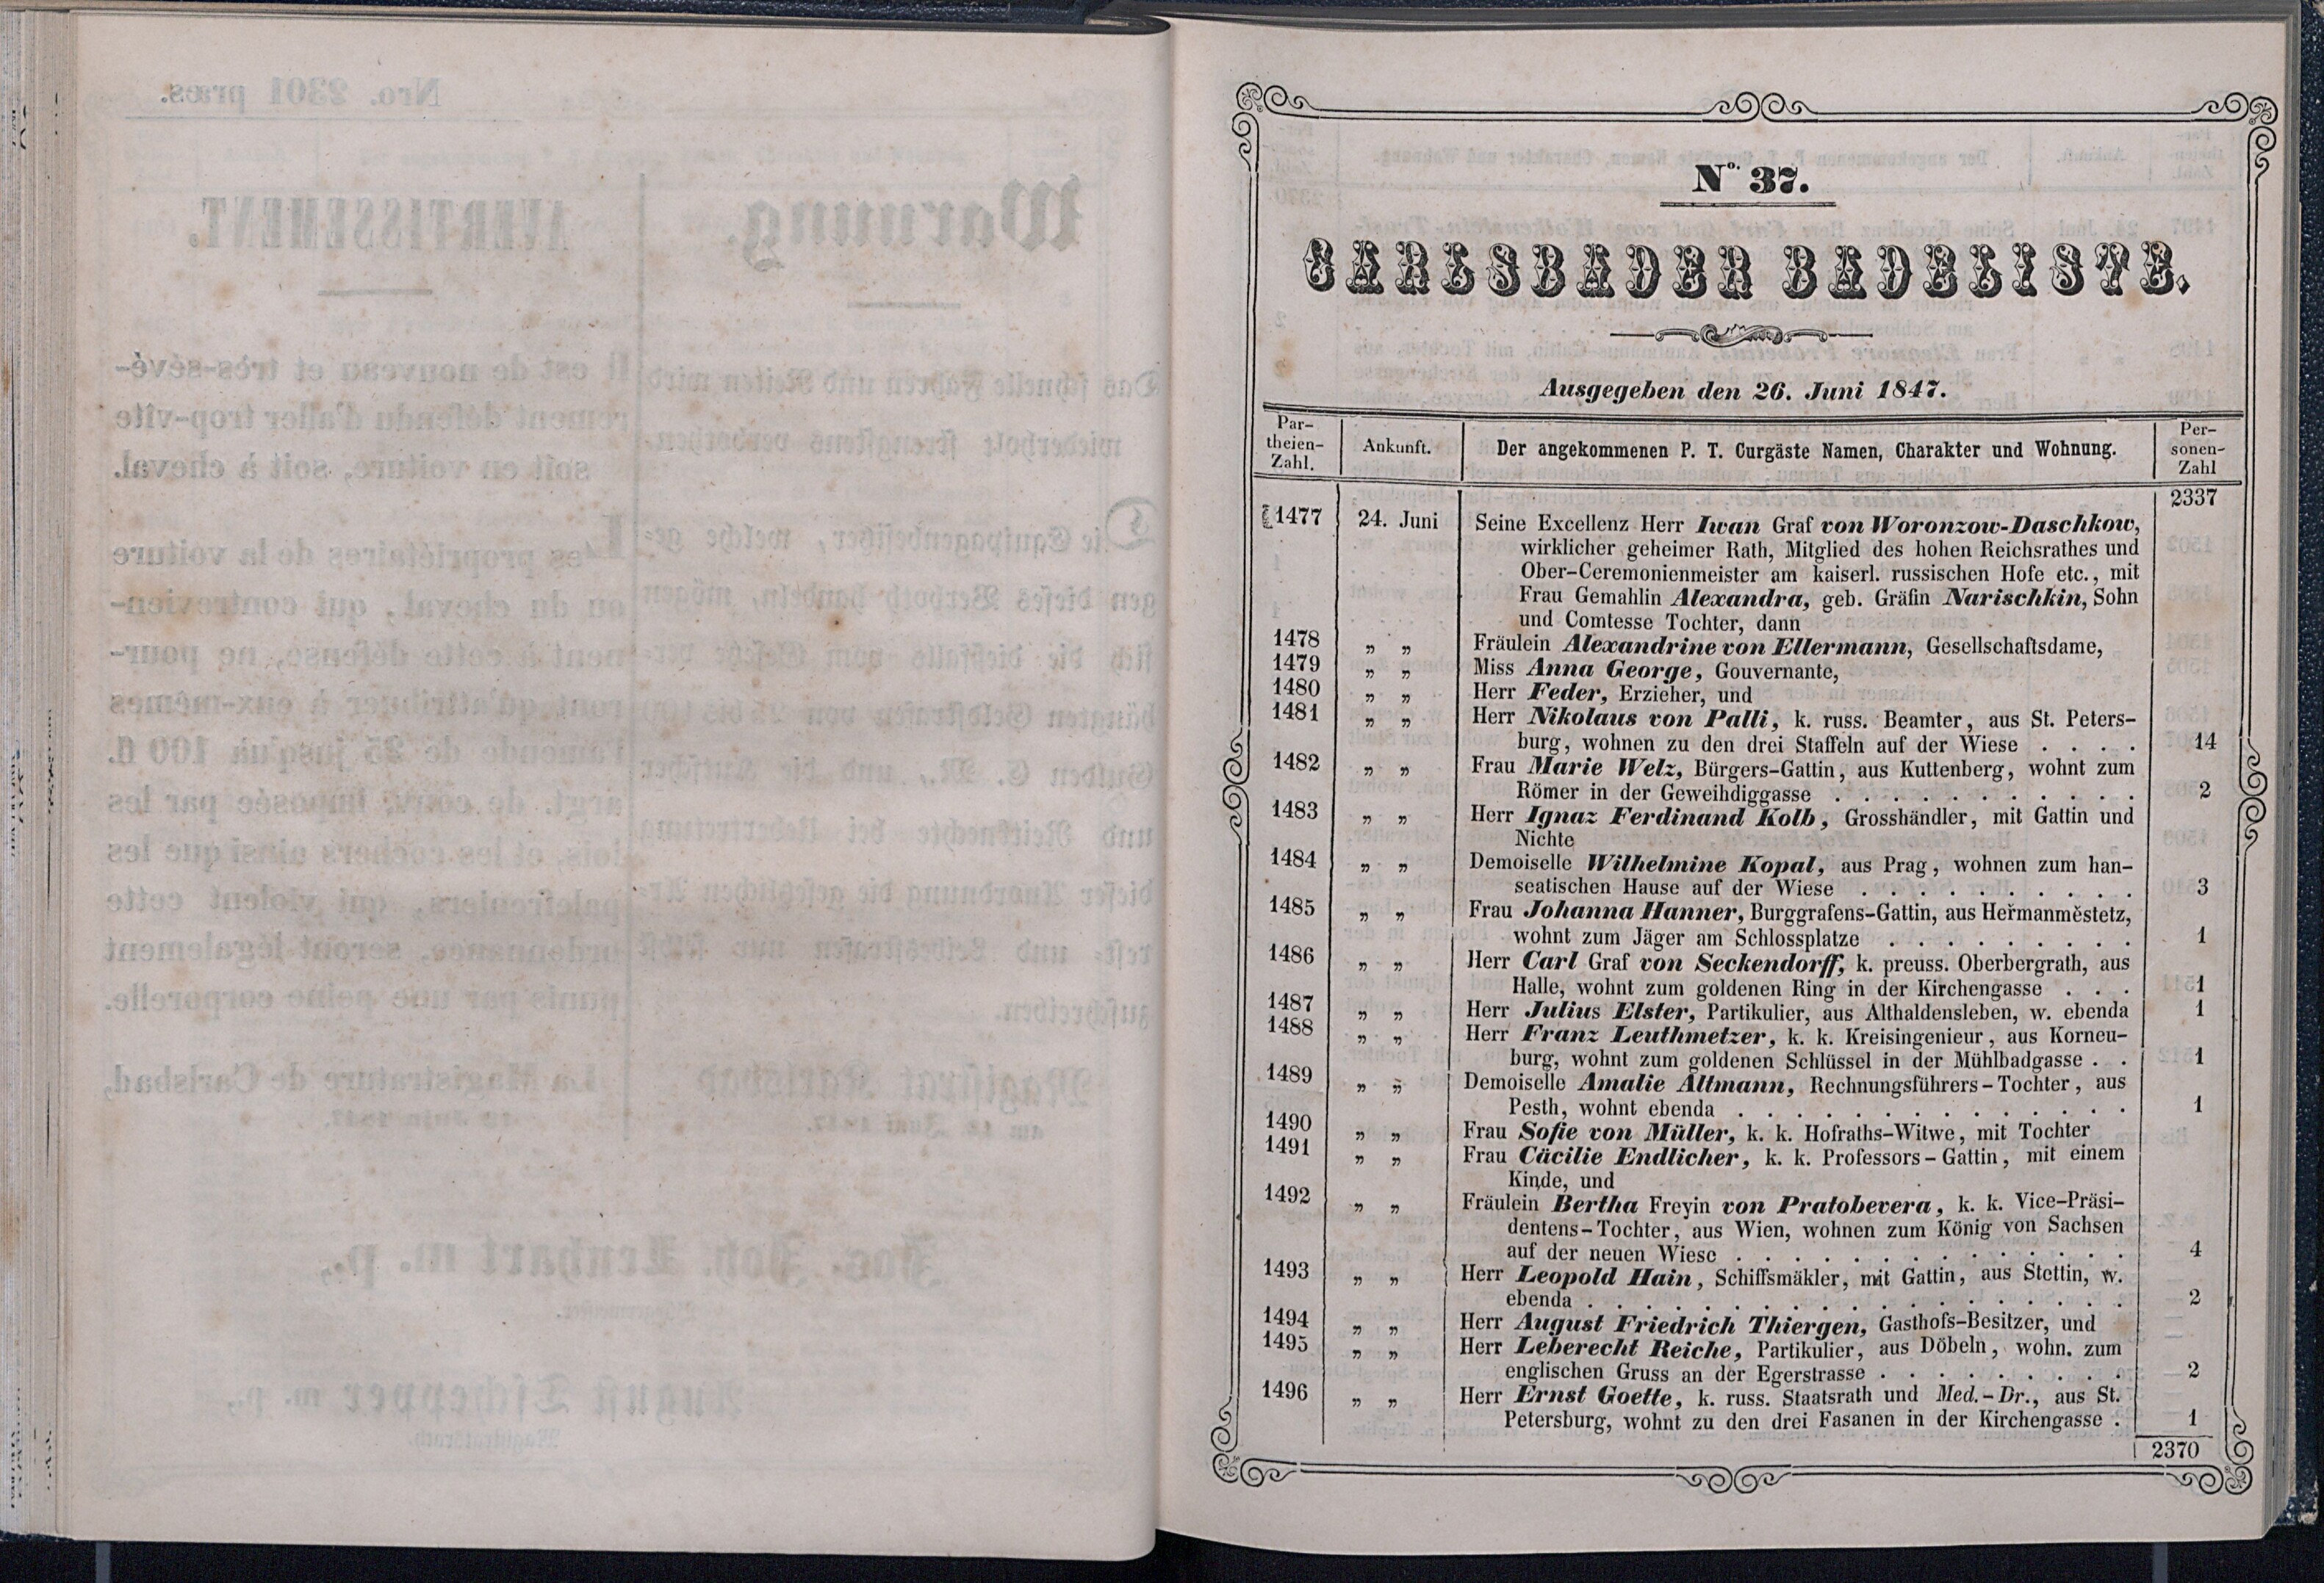 Nº 37.
CARLSBADER BADELISTE.
Ausgegeben den 26. Juni 1847.
Par-
theien-
Zahl.
Ankunft.
Der angekommenen P. T. Curgäste Namen, Charakter und Wohnung.
Per-
sonen-
Zahl
2337
1477 24. Juni Seine Excellenz Herr Iwan Graf von Woronzow-Daschkow,
wirklicher geheimer Rath, Mitglied des hohen Reichsrathes und
Ober-Ceremonienmeister am kaiserl. russischen Hofe etc., mit
Frau Gemahlin Alexandra, geb. Gräfin Narischkin, Sohn
und Comtesse Tochter, dann
1478 „ „ Fräulein Alexandrine von Ellermann, Gesellschaftsdame,
1479 „ „ Miss Anna George, Gouvernante,
1480 „ „ Herr Feder, Erzieher, und
1481 „ „ Herr Nikolaus von Palli, k. russ. Beamter, aus St. Peters-
burg, wohnen zu den drei Staffeln auf der Wiese . . . . 14
1482 „ „ Frau Marie Welz, Bürgers-Gattin, aus Kuttenberg, wohnt zum
Römer in der Geweihdiggasse . . . . . . . . . . . 2
1483 „ „ Herr Ignaz Ferdinand Kolb, Grosshändler, mit Gattin und
Nichte
1484 „ „ Demoiselle Wilhelmine Kopal, aus Prag, wohnen zum han-
seatischen Hause auf der Wiese . . . . . . . . . . 3
1485 „ „ Frau Johanna Hanner, Burggrafens-Gattin, aus Heřmanměstetz,
wohnt zum Jäger am Schlossplatze . . . . . . . . . 1
1486 „ „ Herr Carl Graf von Seckendorff, k. preuss. Oberbergrath, aus
Halle, wohnt zum goldenen Ring in der Kirchengasse . . . 1
1487 „ „ Herr Julius Elster, Partikulier, aus Althaldensleben, w. ebenda 1
1488 „ „ Herr Franz Leuthmetzer, k. k. Kreisingenieur, aus Korneu-
burg, wohnt zum goldenen Schlüssel in der Mühlbadgasse . . 1
1489 „ „ Demoiselle Amalie Altmann, Rechnungsführers-Tochter, aus
Pesth, wohnt ebenda . . . . . . . . . . . . . . 1
1490 „ „ Frau Sofie von Müller, k. k. Hofraths-Witwe, mit Tochter
1491 „ „ Frau Cäcilie Endlicher, k. k. Professors-Gattin, mit einem
Kinde, und
1492 „ „ Fräulein Bertha Freyin von Pratobevera, k. k. Vice-Präsi-
dentens-Tochter, aus Wien, wohnen zum König von Sachsen
auf der neuen Wiese . . . . . . . . . . . . . . 4
1493 „ „ Herr Leopold Hain, Schiffsmäkler, mit Gattin, aus Stettin, w.
ebenda . . . . . . . . . . . . . . . . . . . 2
1494 „ „ Herr August Friedrich Thiergen, Gasthofs-Besitzer, und
1495 „ „ Herr Leberecht Reiche, Partikulier, aus Döbeln, wohn. zum
englischen Gruss an der Egerstrasse . . . . . . . . . 2
1496 „ „ Herr Ernst Goette, k. russ. Staatsrath und Med.-Dr., aus St.
Petersburg, wohnt zu den drei Fasanen in der Kirchengasse . 1
2370